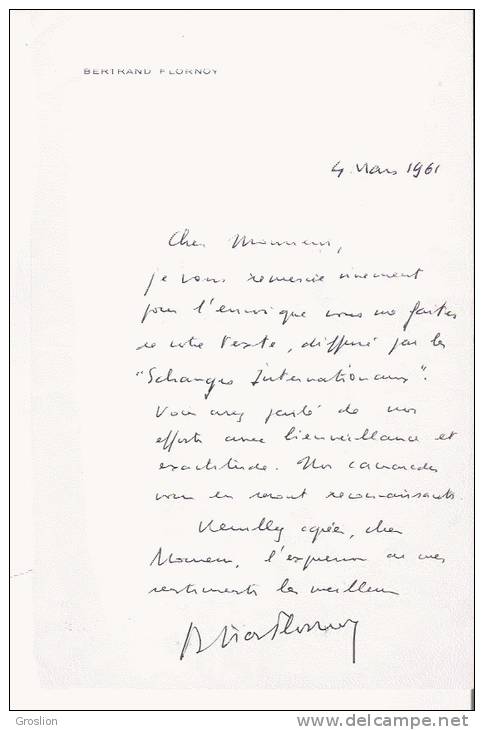 BERTRAND FLORNOY
4 Mars 1961
Cher Monsieur,
je vous remercie vivement
pour l'envoi que vous me faites
de votre texte, diffusé par les
"Echanges Internationaux".
Vous avez parlé de nos
efforts avec bienveillance et
exactitude. Nos camarades
vous en seront reconnaissants.
Veuillez agréer, cher
Monsieur, l'expression de mes
sentiments les meilleurs
Bertrand Flornoy
Groslion
www.delcampe.net